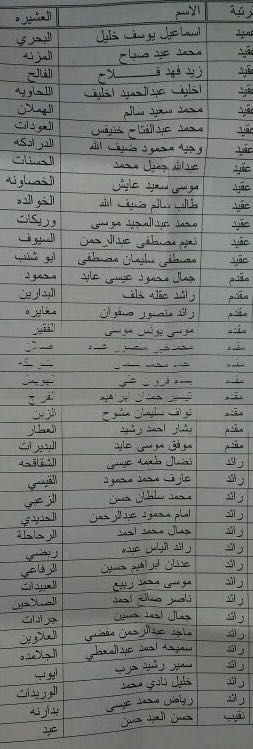 رتبة الاسم العشيره
عميد اسماعيل يوسف خليل البحري
عقيد محمد عيد صباح المزنه
عقيد زيد فهد فلاح الفالح
عقيد اخليف عبدالحميد اخليف اللحاويه
عقيد محمد سعيد سالم الهملان
عقيد محمد عبدالفتاح خنيفس العودات
عقيد وجيه محمود ضيف الله الدرادكه
عقيد عبدالله جميل محمد الحسنات
عقيد موسى سعيد عايش الخصاونه
عقيد طالب سالم ضيف الله الخوالده
عقيد محمد عبدالمجيد موسى وريكات
عقيد نعيم مصطفى عبدالرحمن السيوف
عقيد مصطفى سليمان مصطفى ابو شنب
مقدم جمال محمود عيسى عابد محمود
مقدم راشد عقله خلف البدارين
مقدم رائد منصور صفوان مغايره
مقدم موسى يونس موسى الفقير
مقدم منصور
مقدم محمد
مقدم بسام علي
مقدم تيسير حمدان ابراهيم الفرج
مقدم نواف سليمان مشوح الزبن
مقدم بشار احمد رشيد العطار
مقدم موفق موسى عابد البديرات
رائد نضال طعمه عيسى الشقاقحه
رائد عارف محمد محمود القيسي
رائد محمد سلطان حسن الزعبي
رائد امام محمود عبدالرحمن الحديدي
رائد جمال محمد احمد الرحاحلة
رائد رائد الياس عبده ربضي
رائد عدنان ابراهيم حسين الرفاعي
رائد موسى محمد ربيع العبيدات
رائد ناصر صالح احمد الصلاحين
رائد جمال احمد حسين جرادات
رائد ماجد عبدالرحمن مفضي العلاوين
رائد سميحه احمد عبدالمعطي الجلامده
رائد سمير رشيد حرب ايوب
رائد خليل نادي محمد الوريدات
رائد رياض محمد عيسى بدارنه
نقيب حسن العبد حسن عيد